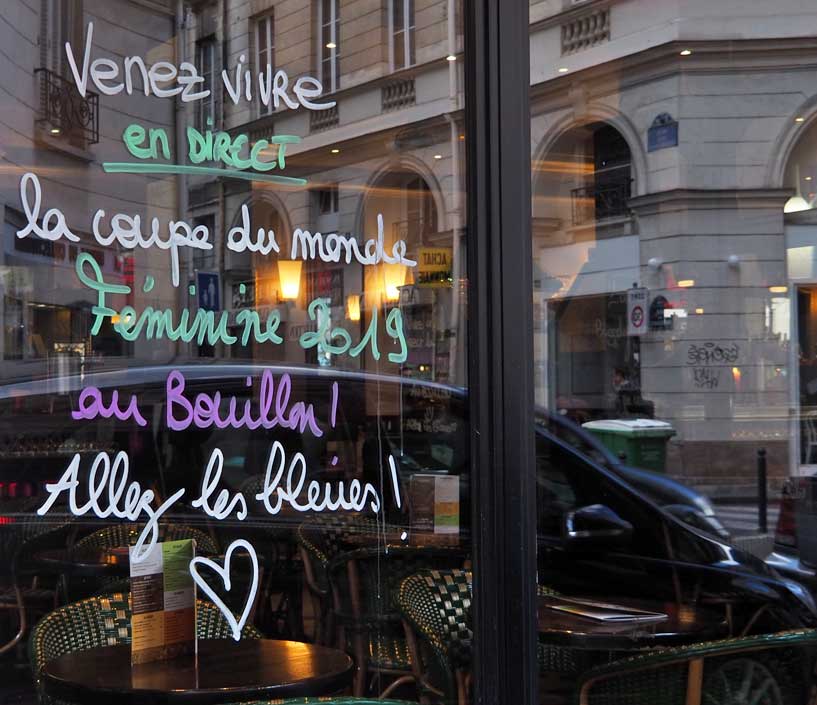 Venez vivre
en DIRECT
la coupe du monde
Féminine 2019
au Bouillon!
Allez les bleues!
ACHAT
MONNAIE